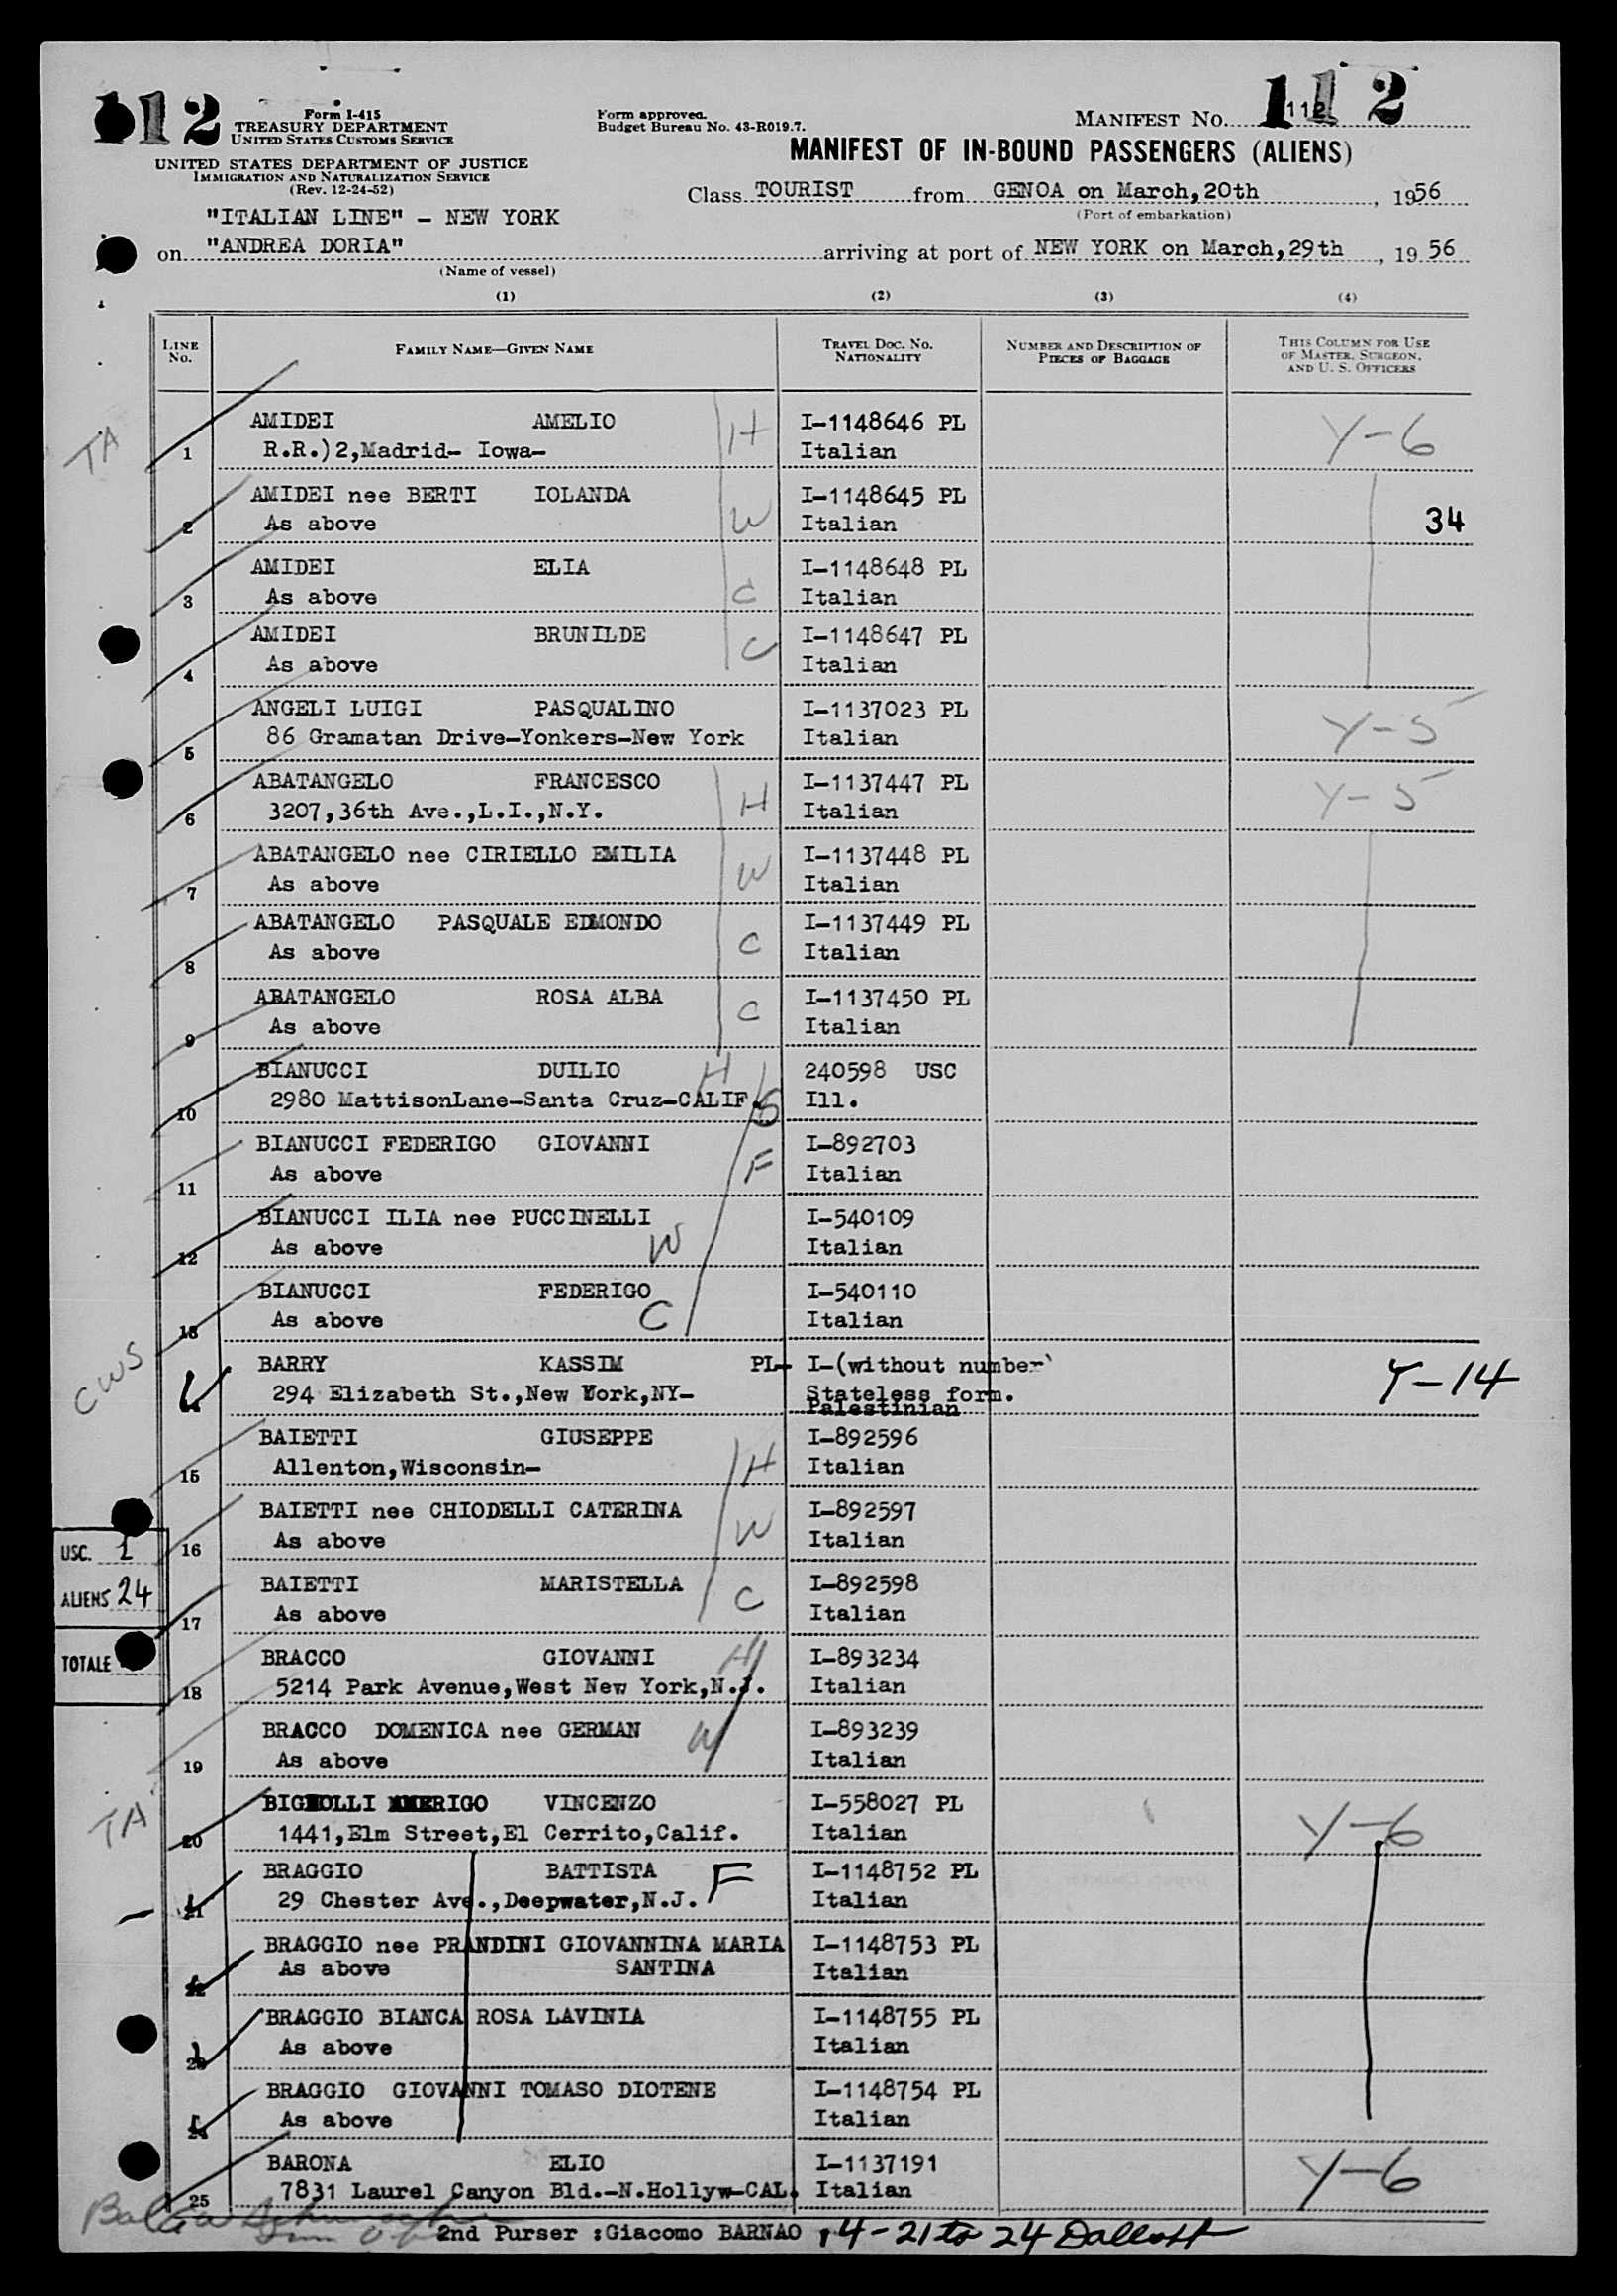 112
Form I-415
TREASURY DEPARTMENT
UNITED STATES CUSTOMS SERVICE
UNITED STATES DEPARTMENT OF JUSTICE
IMMIGRATION AND NATURALIZATION SERVICE
(Rev. 12-24-52)
Form approved.
Budget Bureau No. 43-R019.7.
MANIFEST NO. 112
11 2
MANIFEST OF IN-BOUND PASSENGERS (ALIENS)
Class TOURIST from GENOA on March,20th, 1956
(Port of embarkation)
"ITALIAN LINE" - NEW YORK
on "ANDREA DORIA" arriving at port of NEW YORK on March,29th, 1956
(Name of vessel)
(1) (2) (3) (4)
LINE NO.
FAMILY NAME—GIVEN NAME
TRAVEL DOC. NO. NATIONALITY
NUMBER AND DESCRIPTION OF PIECES OF BAGGAGE
THIS COLUMN FOR USE OF MASTER, SURGEON, AND U. S. OFFICERS
AMIDEI AMELIO H I-1148646 PL Y-6
TA 1 R.R.)2,Madrid- Iowa- Italian
AMIDEI nee BERTI IOLANDA W I-1148645 PL 34
2 As above Italian
AMIDEI ELIA C I-1148648 PL
3 As above Italian
AMIDEI BRUNILDE C I-1148647 PL
4 As above Italian
ANGELI LUIGI PASQUALINO I-1137023 PL Y-5
5 86 Gramatan Drive-Yonkers-New York Italian
ABATANGELO FRANCESCO H I-1137447 PL Y-5
6 3207,36th Ave.,L.I.,N.Y. Italian
ABATANGELO nee CIRIELLO EMILIA W I-1137448 PL
7 As above Italian
ABATANGELO PASQUALE EDMONDO C I-1137449 PL
8 As above Italian
ABATANGELO ROSA ALBA C I-1137450 PL
9 As above Italian
BIANUCCI DUILIO H 240598 USC
10 2980 MattisonLane-Santa Cruz-CALIF. S Ill.
BIANUCCI FEDERIGO GIOVANNI F I-892703
11 As above Italian
BIANUCCI ILIA nee PUCCINELLI W I-540109
12 As above Italian
BIANUCCI FEDERIGO C I-540110
13 As above Italian
CWS BARRY KASSIM PL- I-(without number) Y-14
294 Elizabeth St.,New York,NY- Stateless form.
Palestinian
BAIETTI GIUSEPPE H I-892596
15 Allenton,Wisconsin- Italian
BAIETTI nee CHIODELLI CATERINA W I-892597
16 As above Italian
USC. 1
ALIENS 24
TOTALE
BAIETTI MARISTELLA C I-892598
17 As above Italian
BRACCO GIOVANNI H I-893234
18 5214 Park Avenue,West New York,N.J. Italian
BRACCO DOMENICA nee GERMAN W I-893239
19 As above Italian
TA BIGNOLLI AMERIGO VINCENZO I-558027 PL Y-6
20 1441,Elm Street,El Cerrito,Calif. Italian
BRAGGIO BATTISTA F I-1148752 PL
21 29 Chester Ave.,Deepwater,N.J. Italian
BRAGGIO nee PRANDINI GIOVANNINA MARIA I-1148753 PL
22 As above SANTINA Italian
BRAGGIO BIANCA ROSA LAVINIA I-1148755 PL
23 As above Italian
BRAGGIO GIOVANNI TOMASO DIOTENE I-1148754 PL
24 As above Italian
BARONA ELIO I-1137191 Y-6
25 7831 Laurel Canyon Bld.-N.Hollyw-CAL. Italian
2nd Purser :Giacomo BARNAO 14-21 to 24